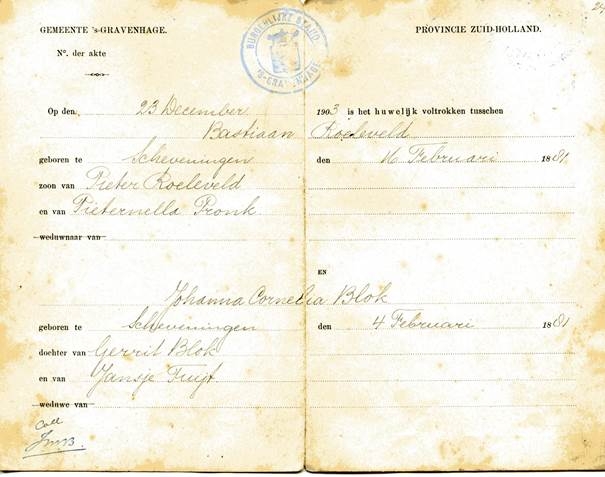 GEMEENTE 's-GRAVENHAGE. PROVINCIE ZUID-HOLLAND.
BURGERLIJKE STAND
'S-GRAVENHAGE
N°. der akte
Op den 23 December 1903 is het huwelijk voltrokken tusschen
Bastiaan Roeleveld
geboren te Scheveningen den 16 Februari 1881
zoon van Pieter Roeleveld
en van Pieternella Pronk
weduwnaar van
EN
Johanna Cornelia Blok
geboren te Scheveningen den 4 Februari 1881
dochter van Gerrit Blok
en van Jansje Tuijt
weduwe van
Coll